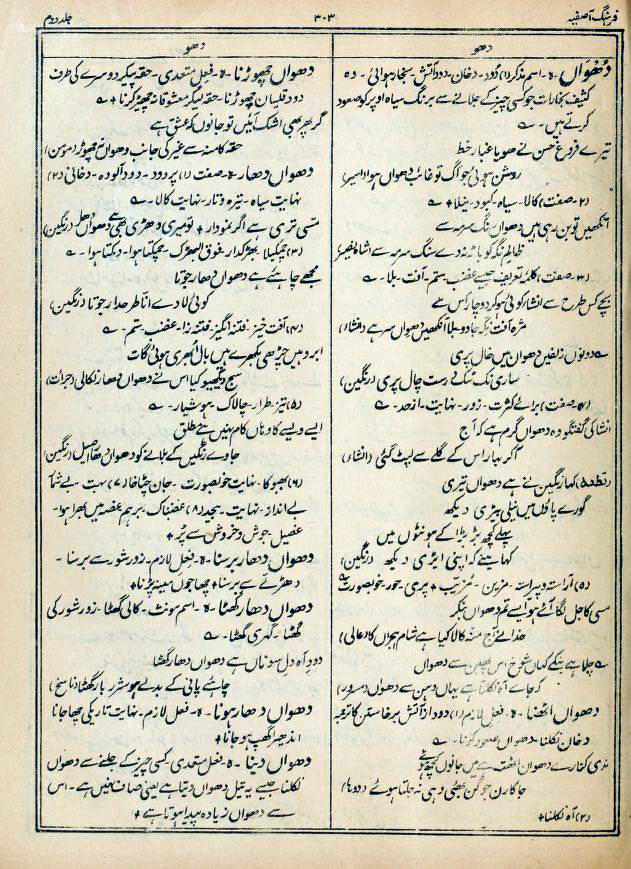 فرہنگ آصفیہ
۳۰۳
جلد دوم
دھو
دُھواں۔ ہ۔ اسم مذکر (۱) دُود۔ دخان۔ دود آتش۔ بخار ہوائی۔ وہ
کثیف بخارات جو کسی چیز کے جلانے سے برنگ سیاہ اوپر کو صعود
کرتے ہیں۔ ؎
تیرے فروغِ حسن نے کھویا غبار خط
روشن ہوئی جو آگ تو غائب دھواں ہوا (اسیر)
(۲۔ صفت) کالا۔ سیاہ۔ کبود۔ نیلا + ؎
آنکھیں تو بن رہی ہیں دھواں رنگ سرمہ سے
ظالم نگہ کو باڑھ نہ دے سنگ سرمہ سے
(۳۔ صفت) کلمۂ تعریف جیسے غضب۔ ستم۔ آفت۔ بلا۔ ؎
بچے کس طرح سے انشا کوئی ہو کر دوچار اس سے
مژہ آفت نگہ جادو بلا آنکھیں دھواں سر ہے (انشا)
؎ دونوں زلفیں دھواں ہیں خال پری
ساری نک سک درست چال پری (رنگین)
(۴۔ صفت) برائے کثرت۔ زور۔ نہایت۔ ازحد۔ ؎
انشا کی گفتگو وہ دھواں گرم ہے کہ آج
آکر بہار اس کے گلے سے لپٹ گئی (انشا)
(قطعہ) کہا رنگین نے ہے دھواں تیری
گورے پاؤں میں نیلی بیڑی دیکھ
پہلے کچھ بڑبڑا کے ہونٹوں میں
کہا اپنی ایڑی دیکھ (رنگین)
(۵) آراستہ و پیراستہ۔ مزین۔ مرتب + پری۔ حور۔ خوبصورت ؎
مسی کاجل لگا آئے ہو ایسے تم دھواں بنکر
خدا نے آج منہ کالا کیا ہے شام ہجراں کا (عالی)
؎ چلا ہے بنکے کہاں شوخ اس سے دھواں
کہ جائے آہ نکلتا ہے یہاں دہن سے دھواں (سرور)
دھواں اٹھنا۔ ہ۔ فعل لازم۔ (۱) دود از آتش برخاستن کا ترجمہ
دخان نکلنا۔ دھواں صعود کرنا۔ ؎
ندی کنارے دھواں اٹھت ہے میں جانوں کچھ ہوئے
جا کارن جوگن بھئی وہی نہ جلتا ہوئے (دوہا)
(۲) آہ نکلنا +
دھو
دھواں چھوڑنا۔ ہ۔ فعل متعدی۔ حقہ پیکر دوسرے کی طرف
دود قلیان چھوڑنا۔ حقہ پیکر معشوقانہ چھیڑ کرنا + ؎
گر پھر بھی اشک آئیں تو جانوں کہ عشق ہے
حقہ کا منہ سے غیر کی جانب دھواں چھوڑ (مومن)
دھواں دھار۔ ہ۔ صفت (۱) پر دود۔ دود آلودہ۔ دخانی (۲)
نہایت سیاہ۔ تیرہ و تار۔ نہایت کالا۔ ؎
مسی تری ہے اگر نمودار + تو میری دھڑی بھی ہے دھواں دھار (رنگین)
(۳) چمکیلا۔ بھڑکدار۔ فوق البھڑک۔ چمکتا ہوا۔ دمکتا ہوا۔ ؎
مجھے چاہئے ہے دھواں دھار جوتا
کوئی لادے اٹا طرحدار جوتا (رنگین)
(۴) آفت خیز۔ فتنہ انگیز۔ فتنہ زا۔ غضب۔ ستم۔ ؎
ابرو میں چڑھی بکھرے ہیں بال ابھری ہوئی گات
سج دیکھیو کیا اس نے دھواں دھار نکالی (جرأت)
(۵) تیز۔ طرار۔ چالاک۔ ہوشیار۔ ؎
ایسے ویسے کا وہاں کام نہیں ہے مطلق
جاوے رنگیں کے بلانے کو دھواں دھار اصیل (رنگین)
(۶) بھبوکا۔ نہایت خوبصورت۔ جان چٹاخا (۷) بہت۔ بے شمار
بے انداز۔ نہایت۔ بیحد (۸) غضبناک۔ برہم۔ غصہ میں بھرا ہوا۔
غصیل۔ جوش و خروش سے پُر +
دھواں دھار برسنا۔ ہ۔ فعل لازم۔ زور شور سے برسنا۔
دھڑلے سے برسنا + چھاجوں مینہ پڑنا +
دھواں دھار گھٹا۔ ہ۔ اسم مونث۔ کالی گھٹا۔ زور شور کی
گھٹا۔ گہری گھٹا۔ ؎
دود آہ دل سوزاں ہے دھواں دھار گھٹا
چاہئے پانی کے بدلے ہو شرر بار گھٹا (ناسخ)
دھواں دھار ہونا۔ ہ۔ فعل لازم۔ نہایت تاریکی چھا جانا
اندھیرا گھپ ہو جانا +
دھواں دینا۔ ہ۔ فعل متعدی۔ کسی چیز کے جلنے سے دھواں
نکلنا جیسے یہ تیل دھواں دیتا ہے یعنی صاف نہیں ہے۔ اس
سے دھواں زیادہ پیدا ہوتا ہے +